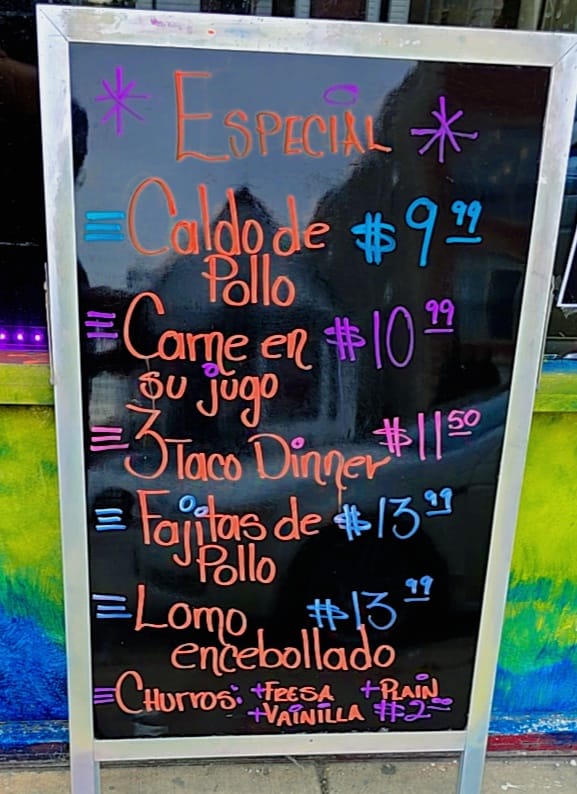 ESPECIAL
Caldo de $9.99
Pollo
Carne en $10.99
su jugo
3 Taco Dinner $11.50
Fajitas de $13.99
Pollo
Lomo $13.99
encebollado
CHurros: +FRESA +PLAIN
+VAINILLA $2.00